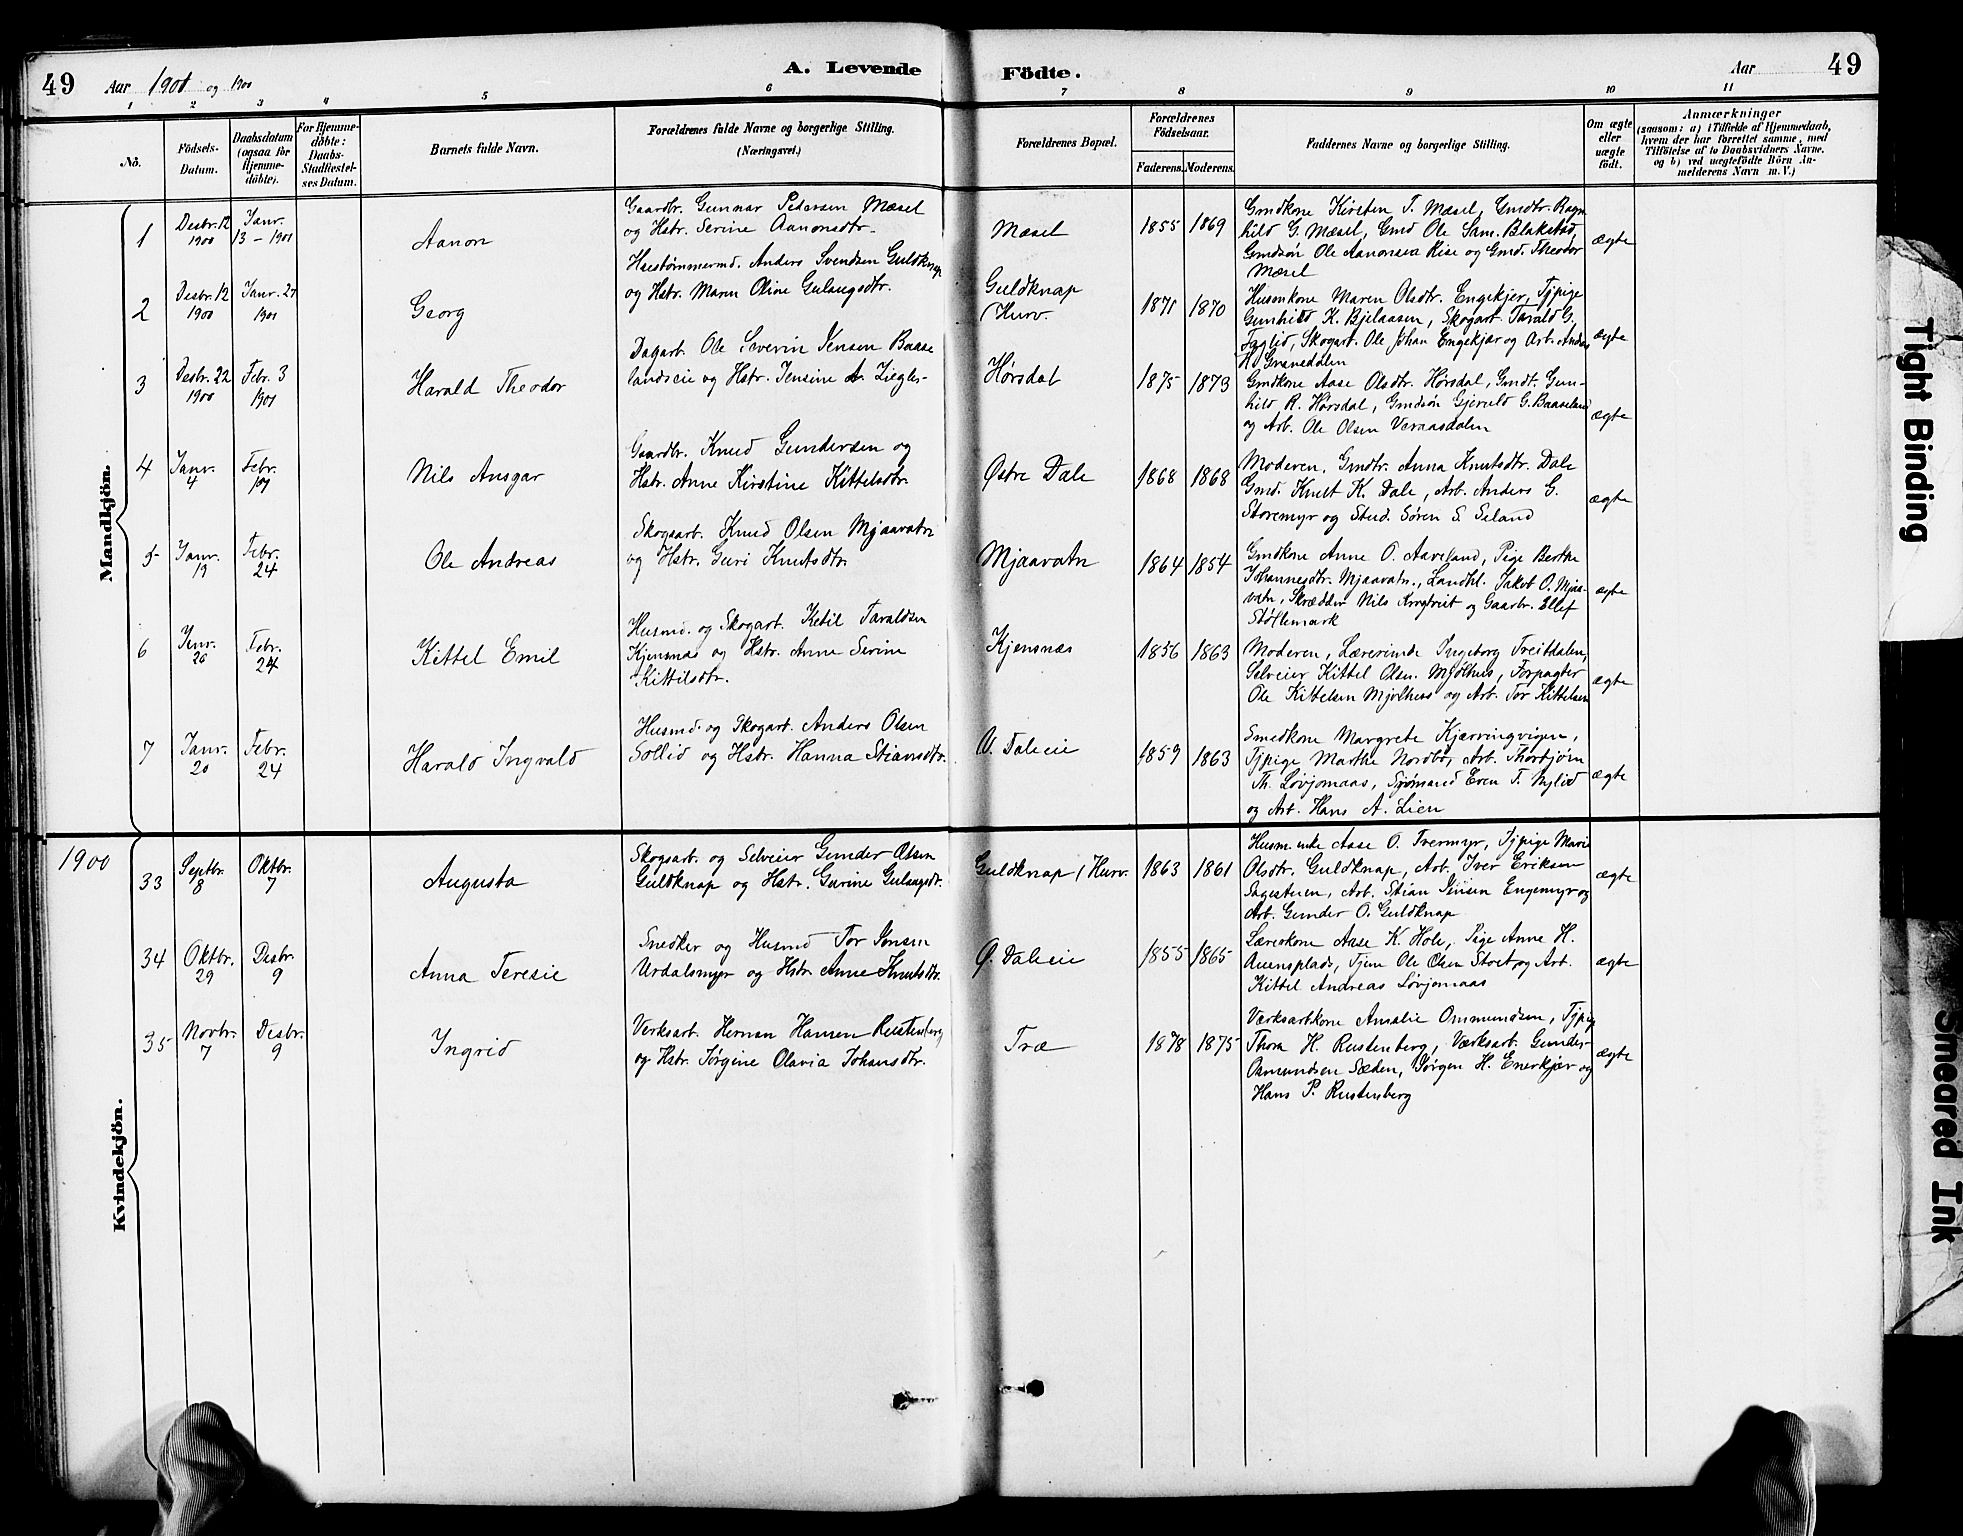 49 Aar 1901 og 1900 A. Levende Födte. Aar 49
1 2 3 4 5 6 7 8 9 10 11
Nô. Födsels-Datum. Daabsdatum (ogsaa for Hjemmedöbte). For Hjemmedöbte: Daabs-Stadfæstelses Datum. Barnets fulde Navn. Forældrenes fulde Navne og borgerlige Stilling. (Næringsvei.) Forældrenes Bopæl. Forældrenes Födselsaar. Faderens. Moderens. Faddernes Navne og borgerlige Stilling. Om ægte eller uægte födt. Anmærkninger (saasom: a) i Tilfælde af Hjemmedaab, hvem der har forrettet samme, med Tilföielse af to Daabsvidners Navne, og b) ved uægtefödte Börn Anmelderens Navn m. V.)
Mandkjön.
1 Desbr. 12 1900 Janr. 13 - 1901 Aanon
Gaardbr. Gunnar Pedersen Mæsel
og Hstr. Serine Aanonsdtr.
Mæsel 1855 1869
Gmdkone Kirsten T. Mæsel, Gmdtr. Ragn
hild G. Mæsel, Gmd Ole Sam. Blakstad,
Gmdsøn Ole Aanonsen Rise og Gmd. Theodor
Mæsel
ægte
2 Desbr. 12 1900 Janr. 27 1901 Georg
Hustømmermd. Anders Svendsen Guldknap
og Hstr. Maren Oline Gulaugsdtr.
Guldknap
Hurv. 1871 1870
Husmkone Maren Olsdtr. Engekjær, Tjpige
Gunhild K. Bjelaasen, Skogart. Tarald G.
Foglid, Skogart. Ole Johan Engekjær og Arb. Anders
H. Grønedalen
ægte
3 Desbr. 22 1900 Febr. 3 1901 Harald Theodor
Dagarb. Ole Severin Jensen Baase
landseie og Hstr. Jensine A. Ziegler-
Hørsdal 1875 1873
Gmdkone Aase Olsdtr. Hørsdal, Gmdt. Gun-
hild R. Hørsdal, Gmdsøn Gjeruld G. Baaseland
og Arb. Ole Olsen Veraasdalen
ægte
4 Janr. 4 Febr. Nils Ansgar
Gaardbr. Knud Gundersen og
Hstr. Anne Kirstine Kittelsdtr.
Østre Dale 1868 1868
Moderen, Gmdtr. Anna Knutsdtr. Dale
Gmd. Knut K. Dale, Arb. Anders G.
Storemyr og Stud. Søren S. Seland
ægte
5 Janr. 19 Febr. 24 Ole Andreas
Skogsarb. Knud Olsen Mjaavatn
og Hstr. Guri Knutsdtr.
Mjaavatn 1864 1854
Gmdkone Anne O. Aaveland, Pige Berthe
Johannesdtr. Mjaavatn, Landhl. Jakob O. Mjaa-
vatn, Skrædder Nils og Gaarbr. Ellef
Støllemark
ægte
6 Janr. 26 Febr. 24 Kittel Emil
Husmd. og Skogart. Ketil Taraldsen
Kjensnæs og Hstr. Anne Serine
Kittilsdtr.
Kjensnæs 1856 1863
Moderen, Lærerinde Ingeborg Freitdalen,
Selveier Kittel Olsen Mjølhus, Forpagter
Ole Kittelsen Mjølhus og Arb. Tor Kittelsen
ægte
7 Janr. 20 Febr. 24 Harald Ingvald
Husmd. og Skogart. Anders Olsen
Sollid og Hstr. Hanna Stiansdtr.
V. Daleeie 1859 1863
Smedkone Margrete Kjærvingvigen,
Tjpige Marthe Nordbø, Arb. Thorbjørn
Th. Løvjomaas, Sjømand Even T. Nylid
og Arb. Hans A. Lien
ægte
1900
Kvindekjön.
33 Septbr. 8 Oktbr. 7 Augusta
Skogsarb. og Selveier Gunder Olsen
Guldknap og Hstr. Gurine Gulaugsdtr.
Guldknap / Hurv. 1863 1861
Husm.enke Aase O. Tvermyr, Tjpige Marie
Olsdtr. Guldknap, Arb. Iver Eriksen
Sagestuen, Arb. Stian Jensen Engemyr og
Arb. Gunder O. Guldknap
ægte
34 Oktbr. 29 Desbr. 9 Anna Teresie
Snedker og Husmd Tor Jensen
Urdalsmyr og Hstr. Anne Knutsdtr.
Ø. Daleeie 1855 1865
Lærerkone Aase K. Hole, Pige Anne H.
Auensplads, Tjen. Ole Olsen Stoet og Art.
Kittel Andreas Løvjomaas
ægte
35 Novbr. 7 Desbr. 9 Ingrid
Verksarb. Herman Hansen Rustenberg
og Hstr. Jørgine Olavia Johansdtr.
Træ 1878 1875
Værksarb.kone Amalie Ommundsen, Tjpige
Thora H. Rustenberg, Værksarb. Gunder
Osmundsen Sæden, Jørgen H. Enerkjær og
Hans P. Rustenberg
ægte
Tight Binding
Smeared Ink